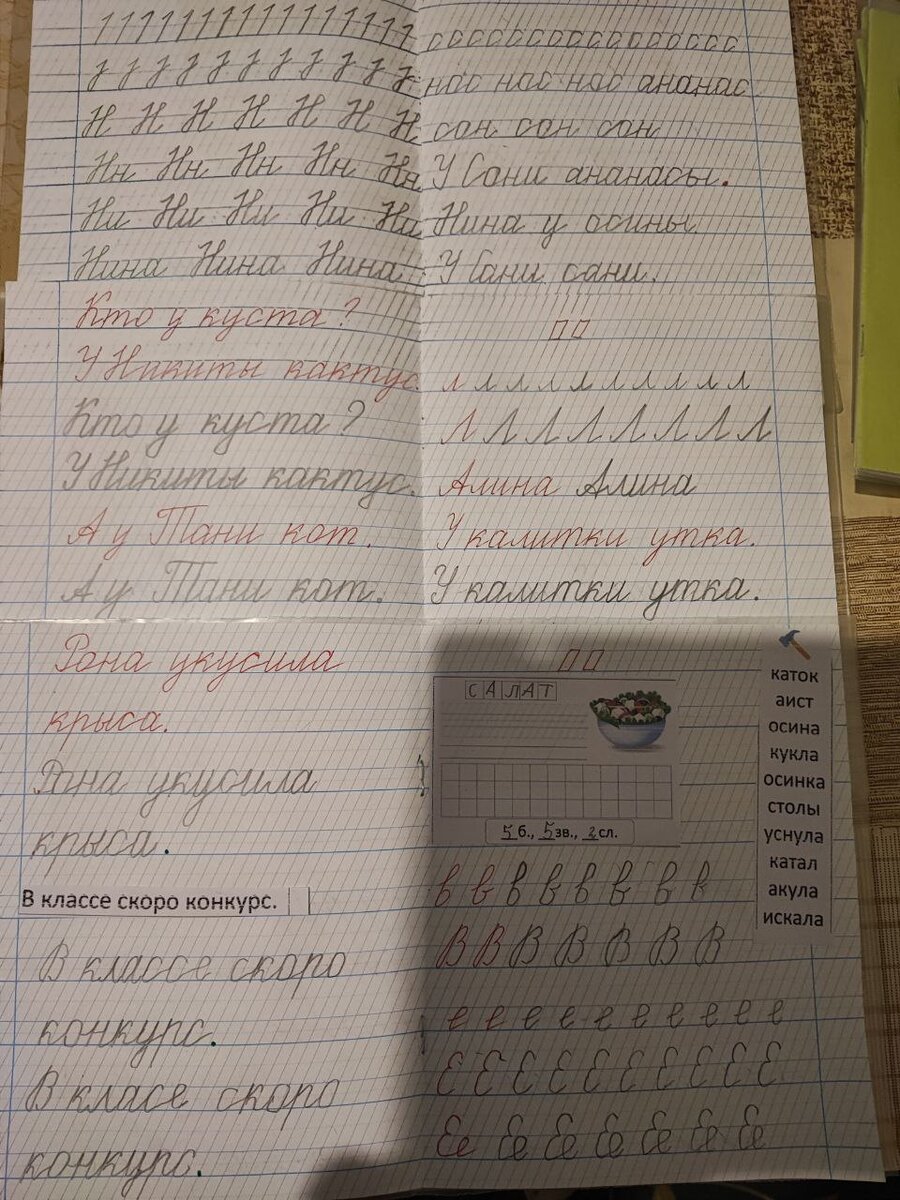 Н Н Н Н Н Н Н
Нн Нн Нн Нн Нн
Ни Ни Ни Ни Ни
Нина Нина Нина
с с с с с с с с с с с с с с с с
нас нас нас ананас
сон сон сон
У Сани ананасы.
Нина у осины
У Сани сани.
Кто у куста?
У Никиты кактус.
Кто у куста?
У Никиты кактус.
А у Тани кот.
А у Тани кот.
л л л л л л л л л л
Л Л Л Л Л Л Л Л
Алина Алина
У калитки утка.
У калитки утка.
Рона укусила
крыса.
Рона укусила
крыса.
В классе скоро конкурс.
В классе скоро
конкурс.
В класе скоро
конкурс.
САЛАТ
5 б., 5 зв., 2 сл.
в в в в в в в в
В В В В В В В
е е е е е е е е е е
Е Е Е Е Е Е Е Е Е Е
Ее Ее Ее Ее Ее Ее Ее
каток
аист
осина
кукла
осинка
столы
уснула
катал
акула
искала